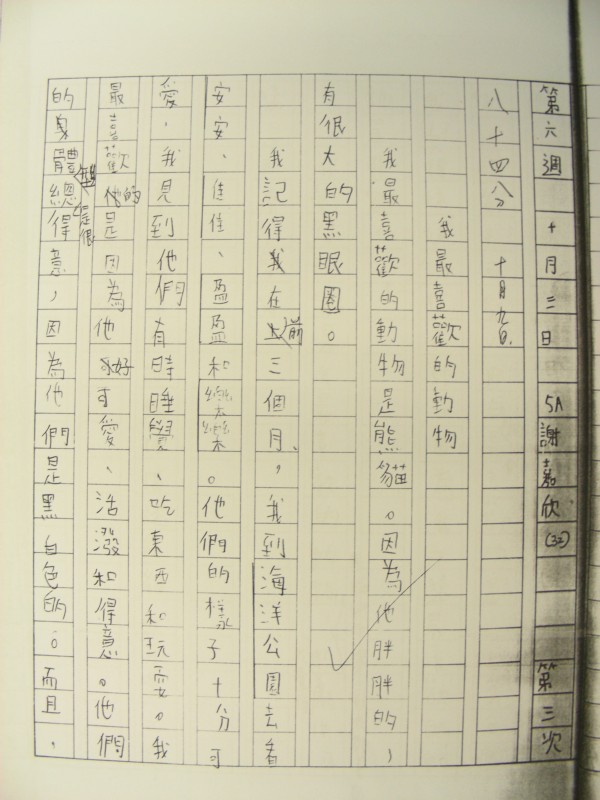 第六週 十月三日 5A謝嘉欣(32) 第三次
八十四分 十月九日
我最喜歡的動物
我最喜歡的動物是熊貓。因為他胖胖的，
有很大的黑眼圈。
我記得我在上前三個月，我到海洋公園去看
安安、佳佳、盈盈和樂樂。他們的樣子十分可
愛，我見到他們有時睡覺、吃東西和玩耍。我
最喜歡他的是因為他好可愛、活潑和得意。他們
的身體總是很得意，因為他們是黑白色的。而且，